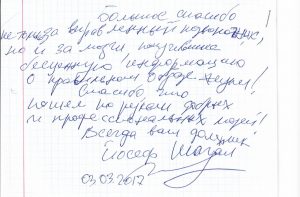 Большое спасибо
не только за вправленный позвоночник,
но и за мозги получившие
бесценную информацию
о правильном образе жизни!
Спасибо, что
пошел по рукам добрых
и профессиональных людей!
Всегда ваш должник
Йосеф Шагал
03.03.2017